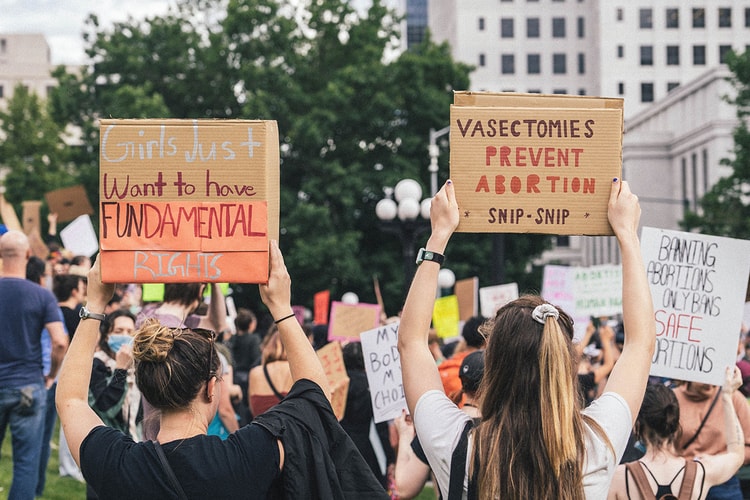 Girls Just
Want to have
FUNDAMENTAL
RIGHTS
VASECTOMIES
PREVENT
ABORTION
* SNIP-SNIP *
BANNING
ABORTIONS
ONLY BANS
SAFE
ABORTIONS
MY
BODY
MY
CHOICE